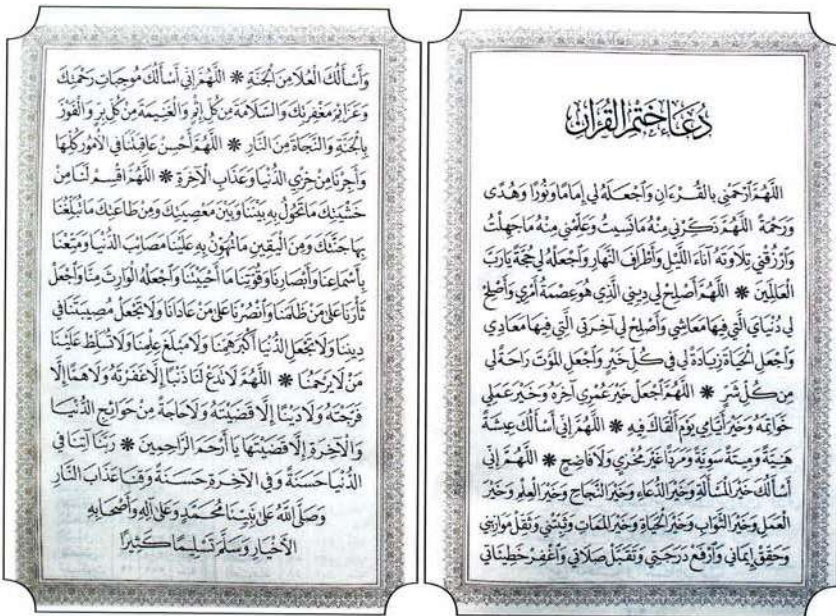 دُعَاءُ خَتْمِ الْقُرْآنِ
اللَّهُمَّ ٱرْحَمْنِي بِالْقُرْءَانِ وَٱجْعَلْهُ لِي إِمَامًا وَنُورًا وَهُدًى
وَرَحْمَةً اللَّهُمَّ ذَكِّرْنِي مِنْهُ مَا نَسِيتُ وَعَلِّمْنِي مِنْهُ مَا جَهِلْتُ
وَٱرْزُقْنِي تِلَاوَتَهُ آنَاءَ اللَّيْلِ وَأَطْرَافَ النَّهَارِ وَٱجْعَلْهُ لِي حُجَّةً يَارَبَّ
الْعَالَمِينَ * اللَّهُمَّ أَصْلِحْ لِي دِينِي الَّذِي هُوَ عِصْمَةُ أَمْرِي وَأَصْلِحْ
لِي دُنْيَايَ الَّتِي فِيهَا مَعَاشِي وَأَصْلِحْ لِي آخِرَتِي الَّتِي فِيهَا مَعَادِي
وَٱجْعَلِ الْحَيَاةَ زِيَادَةً لِي فِي كُلِّ خَيْرٍ وَٱجْعَلِ الْمَوْتَ رَاحَةً لِي
مِن كُلِّ شَرٍّ * اللَّهُمَّ ٱجْعَلْ خَيْرَ عُمْرِي آخِرَهُ وَخَيْرَ عَمَلِي
خَوَاتِمَهُ وَخَيْرَ أَيَّامِي يَوْمَ أَلْقَاكَ فِيهِ * اللَّهُمَّ إِنِّي أَسْأَلُكَ عِيشَةً
هَنِيَّةً وَمِيتَةً سَوِيَّةً وَمَرَدًّا غَيْرَ مُخْزٍي وَلَا فَاضِحٍ * اللَّهُمَّ إِنِّي
أَسْأَلُكَ خَيْرَ الْمَسْأَلَةِ وَخَيْرَ الدُّعَاءِ وَخَيْرَ النَّجَاحِ وَخَيْرَ الْعِلْمِ وَخَيْرَ
الْعَمَلِ وَخَيْرَ الثَّوَابِ وَخَيْرَ الْحَيَاةِ وَخَيْرَ الْمَمَاتِ وَثَبِّتْنِي وَثَقِّلْ مَوَازِينِي
وَحَقِّقْ إِيمَانِي وَٱرْفَعْ دَرَجَتِي وَتَقَبَّلْ صَلَاتِي وَٱغْفِرْ خَطِيئَاتِي
وَأَسْأَلُكَ الْعُلَا مِنَ الْجَنَّةِ * اللَّهُمَّ إِنِّي أَسْأَلُكَ مُوجِبَاتِ رَحْمَتِكَ
وَعَزَائِمَ مَغْفِرَتِكَ وَالسَّلَامَةَ مِن كُلِّ إِثْمٍ وَالْغَنِيمَةَ مِن كُلِّ بِرٍّ وَالْفَوْزَ
بِالْجَنَّةِ وَالنَّجَاةَ مِنَ النَّارِ * اللَّهُمَّ أَحْسِنْ عَاقِبَتَنَا فِي الْأُمُورِ كُلِّهَا
وَأَجِرْنَا مِنْ خِزْيِ الدُّنْيَا وَعَذَابِ الْآخِرَةِ * اللَّهُمَّ ٱقْسِمْ لَنَا مِنْ
خَشْيَتِكَ مَا تَحُولُ بِهِ بَيْنَنَا وَبَيْنَ مَعْصِيَتِكَ وَمِن طَاعَتِكَ مَا تُبَلِّغُنَا
بِهَا جَنَّتَكَ وَمِنَ الْيَقِينِ مَا تُهَوِّنُ بِهِ عَلَيْنَا مَصَائِبَ الدُّنْيَا وَمَتِّعْنَا
بِأَسْمَاعِنَا وَأَبْصَارِنَا وَقُوَّتِنَا مَا أَحْيَيْتَنَا وَٱجْعَلْهُ الْوَارِثَ مِنَّا وَٱجْعَلْ
ثَأْرَنَا عَلَى مَنْ ظَلَمَنَا وَٱنْصُرْنَا عَلَى مَنْ عَادَانَا وَلَا تَجْعَلْ مُصِيبَتَنَا فِي
دِينِنَا وَلَا تَجْعَلِ الدُّنْيَا أَكْبَرَ هَمِّنَا وَلَا مَبْلَغَ عِلْمِنَا وَلَا تُسَلِّطْ عَلَيْنَا
مَنْ لَا يَرْحَمُنَا * اللَّهُمَّ لَا تَدَعْ لَنَا ذَنْبًا إِلَّا غَفَرْتَهُ وَلَا هَمًّا إِلَّا
فَرَّجْتَهُ وَلَا دَيْنًا إِلَّا قَضَيْتَهُ وَلَا حَاجَةً مِنْ حَوَائِجِ الدُّنْيَا
وَالْآخِرَةِ إِلَّا قَضَيْتَهَا يَا أَرْحَمَ الرَّاحِمِينَ * رَبَّنَا آتِنَا فِي
الدُّنْيَا حَسَنَةً وَفِي الْآخِرَةِ حَسَنَةً وَقِنَا عَذَابَ النَّارِ
وَصَلَّى اللَّهُ عَلَى نَبِيِّنَا مُحَمَّدٍ وَعَلَى آلِهِ وَأَصْحَابِهِ
الْأَخْيَارِ وَسَلَّمَ تَسْلِيمًا كَثِيرًا